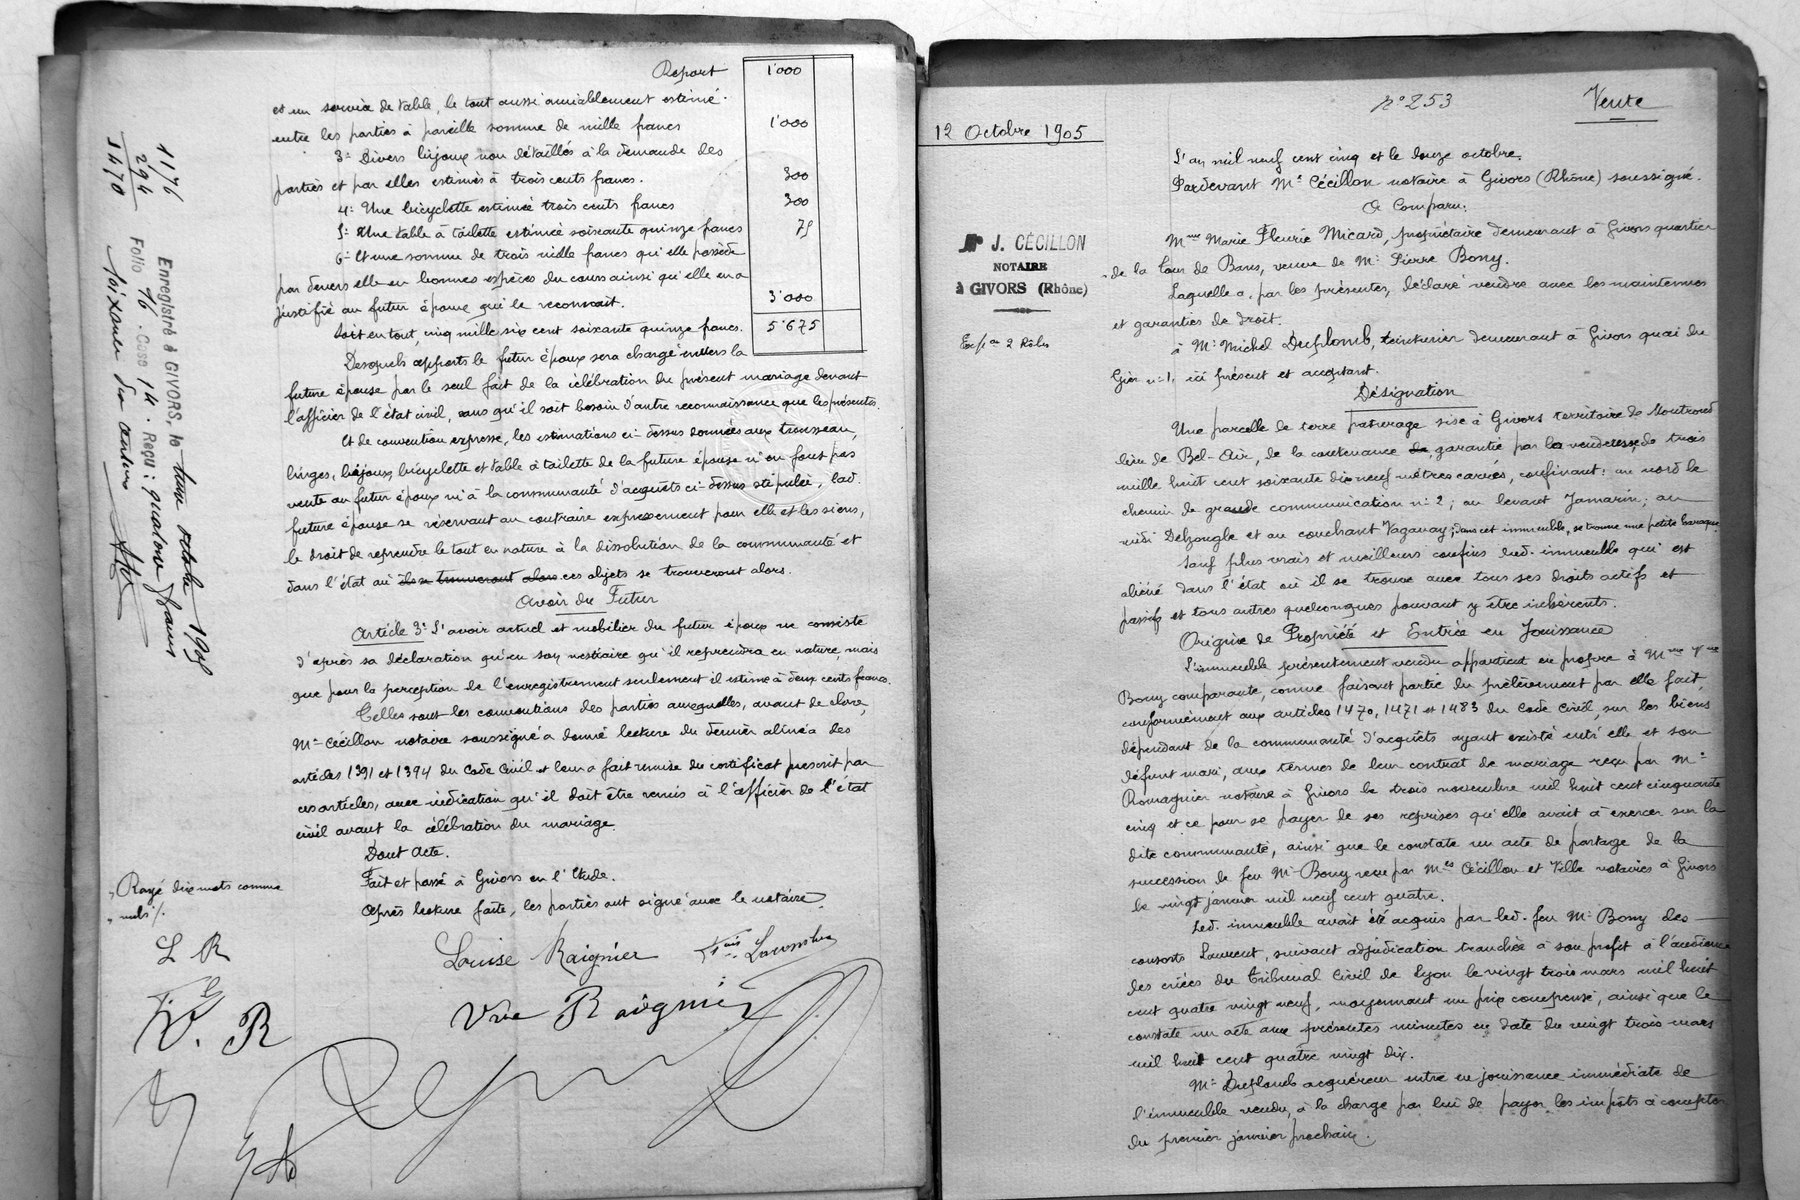 Report 1'000
et un service de table, le tout aussi amiablement estimé
entre les parties à pareille somme de mille francs 1'000
3º Divers bijoux non détaillés à la demande des
parties et par elles estimés à trois cents francs. 300
4º Une bicyclette estimée trois cents francs 300
5º Une table à toilette estimée soixante quinze francs 75
6º Et une somme de trois mille francs qu'elle possède
par devers elle en bonnes espèces du cours ainsi qu'elle en a
justifié au futur époux qui le reconnait. 3'000
Soit en tout, cinq mille six cent soixante quinze francs. 5'675
Desquels apports le futur époux sera chargé envers la
future épouse par le seul fait de la célébration du présent mariage devant
l'officier de l'état civil, sans qu'il soit besoin d'autre reconnaissance que les présentes.
Et de convention expresse, les estimations ci-dessus données aux trousseau,
linges, bijoux, bicyclette et table à toilette de la future épouse n'en font pas
vente au futur époux ni à la communauté d'acquêts ci-dessus stipulée, lad.
future épouse se réservant au contraire expressément pour elle et les siens,
le droit de reprendre le tout en nature à la dissolution de la communauté et
dans l'état où ils se trouveront alors ces objets se trouveront alors.
Avoir du Futur
Article 3º L'avoir actuel et mobilier du futur époux ne consiste
d'après sa déclaration qu'en son vestiaire qu'il reprendra en nature, mais
que pour la perception de l'enregistrement seulement il estime à deux cents francs.
Telles sont les conventions des parties auxquelles, avant de clore,
Mº Cécillon notaire soussigné a donné lecture du dernier alinéa des
articles 1391 et 1394 du Code Civil et leur a fait remise du certificat prescrit par
ces articles, avec indication qu'il doit être remis à l'officier de l'état
civil avant la célébration du mariage.
Dont Acte.
Fait et passé à Givors en l'Etude.
Après lecture faite, les parties ont signé avec le notaire.
Rayé dix mots comme
nuls
L R
V. R
Louise Raignier
Vve Raignier
1176
294
1470
Enregistré à GIVORS, le treize octobre 1905
Folio 16 Case 14. Reçu: quatorze francs
soixante dix centimes
12 Octobre 1905
nº 253
Vente
J. CÉCILLON
NOTAIRE
à GIVORS (Rhône)
Exp on 2 Rôles
L'an mil neuf cent cinq et le douze octobre.
Pardevant Mº Cécillon notaire à Givors (Rhône) soussigné.
A Comparu:
Mme Marie Fleurie Micard, propriétaire demeurant à Givors quartier
de la tour de Bans, veuve de Mr Pierre Bony.
Laquelle a, par les présentes, déclaré vendre avec les maintenues
et garanties de droit.
à Mr Michel Duplomb, teinturier demeurant à Givors quai du
Gier nº 1, ici présent et acceptant.
Désignation
Une parcelle de terre paturage sise à Givors territoire de Montrond
lieu de Bel-Air, de la contenance de garantie par la venderesse, de trois
mille huit cent soixante dix neuf mètres carrés, confinant: au nord le
chemin de grande communication nº 2; au levant Jamarin; au
midi Delzongle et au couchant Vaganay; dans cet immeuble, se trouve une petite baraque.
Sauf plus vrais et meilleurs confins dud. immeuble qui est
aliéné dans l'état où il se trouve avec tous ses droits actifs et
passifs et tous autres quelconques pouvant y être inhérents.
Origine de Propriété et Entrée en Jouissance
L'immeuble présentement vendu appartient en propre à Mme Vve
Bony comparante, comme faisant partie du prélèvement par elle fait,
conformément aux articles 1470, 1471 et 1483 du Code Civil, sur les biens
dépendant de la communauté d'acquêts ayant existé entr'elle et son
défunt mari, aux termes de leur contrat de mariage reçu par Mº
Romagnier notaire à Givors le trois novembre mil huit cent cinquante
cinq et ce pour se payer de ses reprises qu'elle avait à exercer sur la
dite communauté, ainsi que le constate un acte de partage de la
succession de feu Mr Bony reçu par Mes Cécillon et Ville notaires à Givors
le vingt janvier mil neuf cent quatre.
Led. immeuble avait été acquis par led. feu Mr Bony des
consorts Laurent, suivant adjudication tranchée à son profit à l'audience
des criées du Tribunal Civil de Lyon le vingt trois mars mil huit
cent quatre vingt neuf, moyennant un prix compensé, ainsi que le
constate un acte aux présentes minutes en date du vingt trois mars
mil huit cent quatre vingt dix.
Mr Duplomb acquéreur entre en jouissance immédiate de
l'immeuble vendu, à la charge par lui de payer les impôts à compter
du premier janvier prochain.